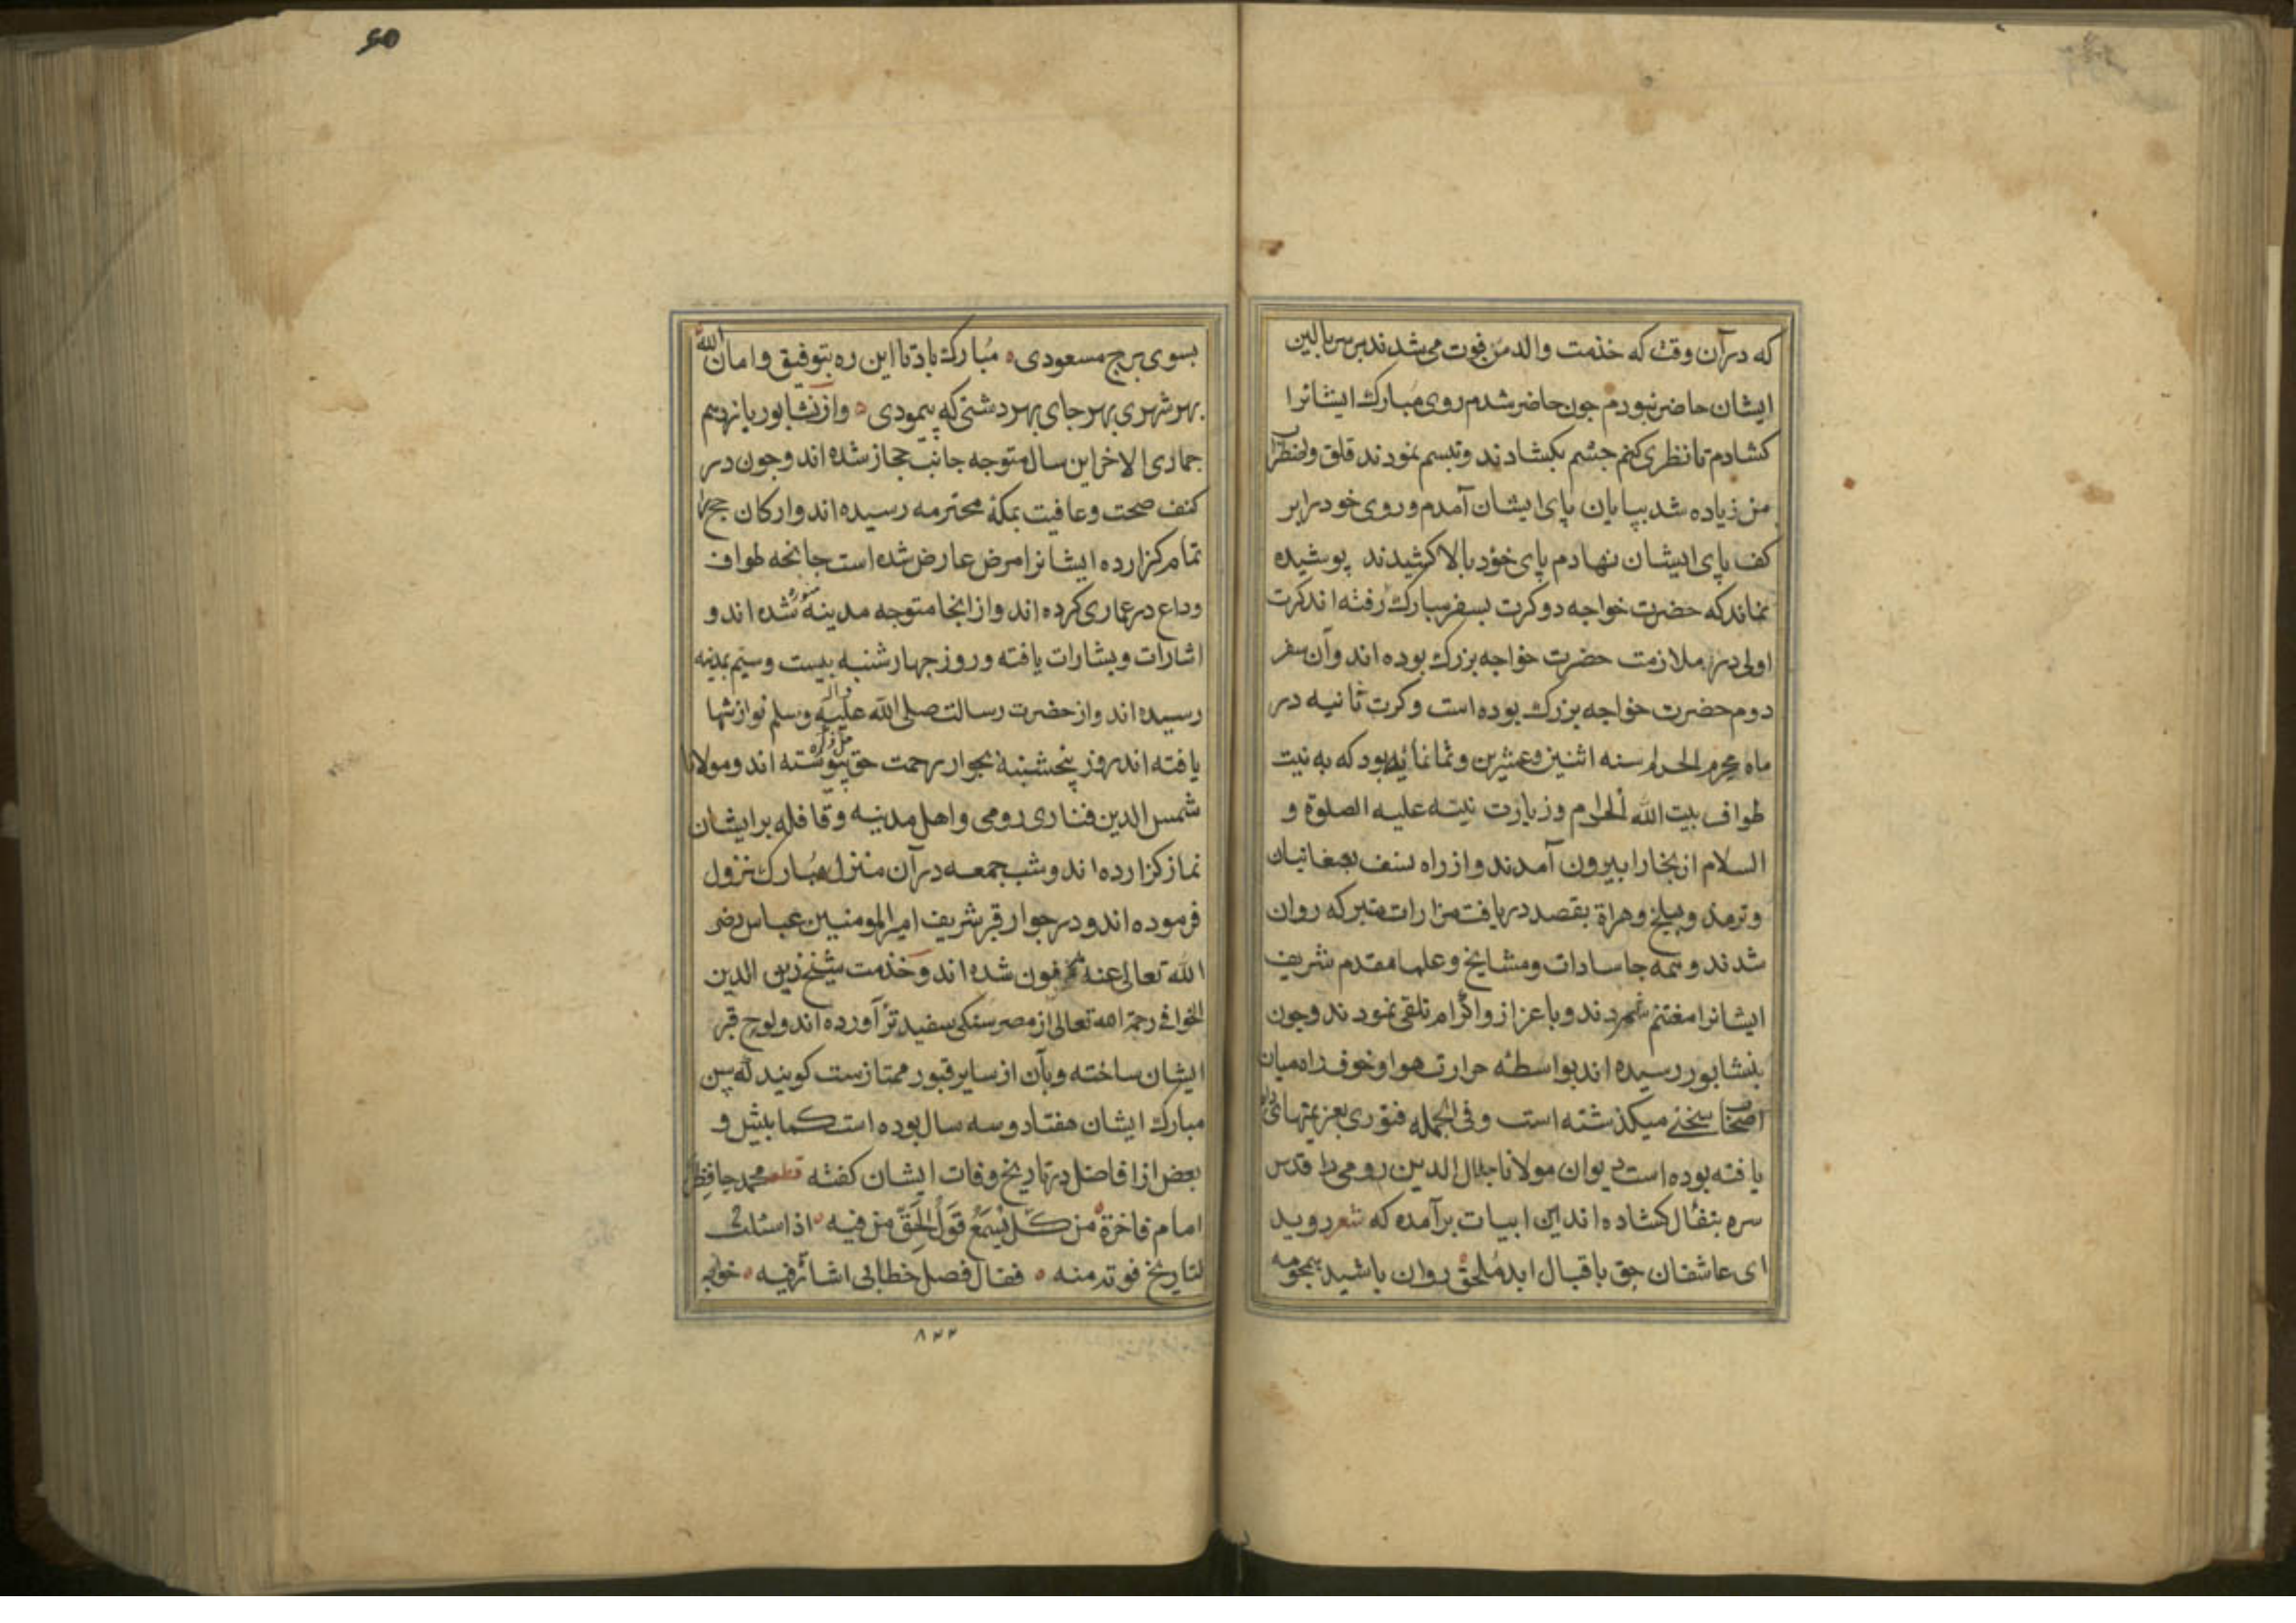 که در آن وقت که خذمت والد من فوت می شدند بر سر بالین
ایشان حاضر نبودم جون حاضر شدم روی مبارک ایشانرا
کشادم تا نظری کنم جشم بکشادند و تبسم نمودند قلق و اضطراب
من زیاده شد بپایان پای ایشان آمدم و روی خود را بر
کف پای ایشان نهادم پای خود بالا کشیدند پوشیده
نماند که حضرت خواجه دو کرت بسفر مبارک رفته اند کرت
اولی در ملازمت حضرت خواجه بزرک بوده اند و آن سفر
دوم حضرت خواجه بزرک بوده است و کرت ثانیه در
ماه محرم الحرام سنه اثنین و عشرین و ثمانمائیه بود که به نیت
طواف بیت الله الحرام و زیارت نبیه علیه الصلوة و
السلام از بخارا بیرون آمدند و از راه نسف بصغانیان
و ترمذ و ببلخ و هراة بقصد دریافت مزارات متبرکه روان
شدند و همه جا سادات و مشایخ و علما مقدم شریف
ایشانرا مغتنم شمردند و با عزاز و اکرام تلقی نمودند و جون
بنشابور رسیده اند بواسطه حرارت هوا و خوف راه میان
اصحاب سخنی میکذشته است و فی الجمله فتوری بعزیمتهای راه
یافته بوده است دیوان مولانا جلال الدین رومی را قدس
سره بتفأل کشاده اند این ابیات برآمده که شعر روید
ای عاشقان حق باقبال ابد ملحق روان باشید همجو مه
بسوی برج مسعودی مبارک بادتا این ره بتوفیق و امان الله
بهر شهری بهر جای بهر دشتی که پیمودی و از نشابور یازدهم
جمادی الاخر این سال متوجه جانب حجاز شده اند و جون در
کنف صحت و عافیت بمکه محترمه رسیده اند و ارکان حج را
تمام کزارده ایشانرا مرض عارض شده است جانحه طواف
وداع در عماری کرده اند و از انجا متوجه مدینه منوره شده اند و
اشارات و بشارات یافته و روز جهارشنبه بیست و سیم بمدینه
رسیده اند و از حضرت رسالت صلی الله علیه و آله وسلم نوازشها
یافته اند روز پنجشنبه بجوار رحمت حق پیوسته اند و مولانا
شمس الدین فناری رومی و اهل مدینه و قافله بر ایشان
نماز کزارده اند و شب جمعه در آن منزل مبارک نزول
فرموده اند و در جوار قبر شریف امیر المومنین عباس رضی
الله تعالی عنه مدفون شده اند و خذمت شیخ زین الدین
الخوافی رحمة الله تعالی از مصر سنکی سفید تراورده اند و لوح قبر
ایشان ساخته و بآن از سایر قبور ممتازست کویند که سن
مبارک ایشان هفتاد و سه سال بوده است کما بیش و
بعض از افاضل در تاریخ وفات ایشان کفته قطعه محمد حافظی
امام فاخرة من کل یسمع قول الحق من فیه اذا سئلت
لتاریخ فوته منه فقال فصل خطابی اشارة فیه خواجه
۸۲۲